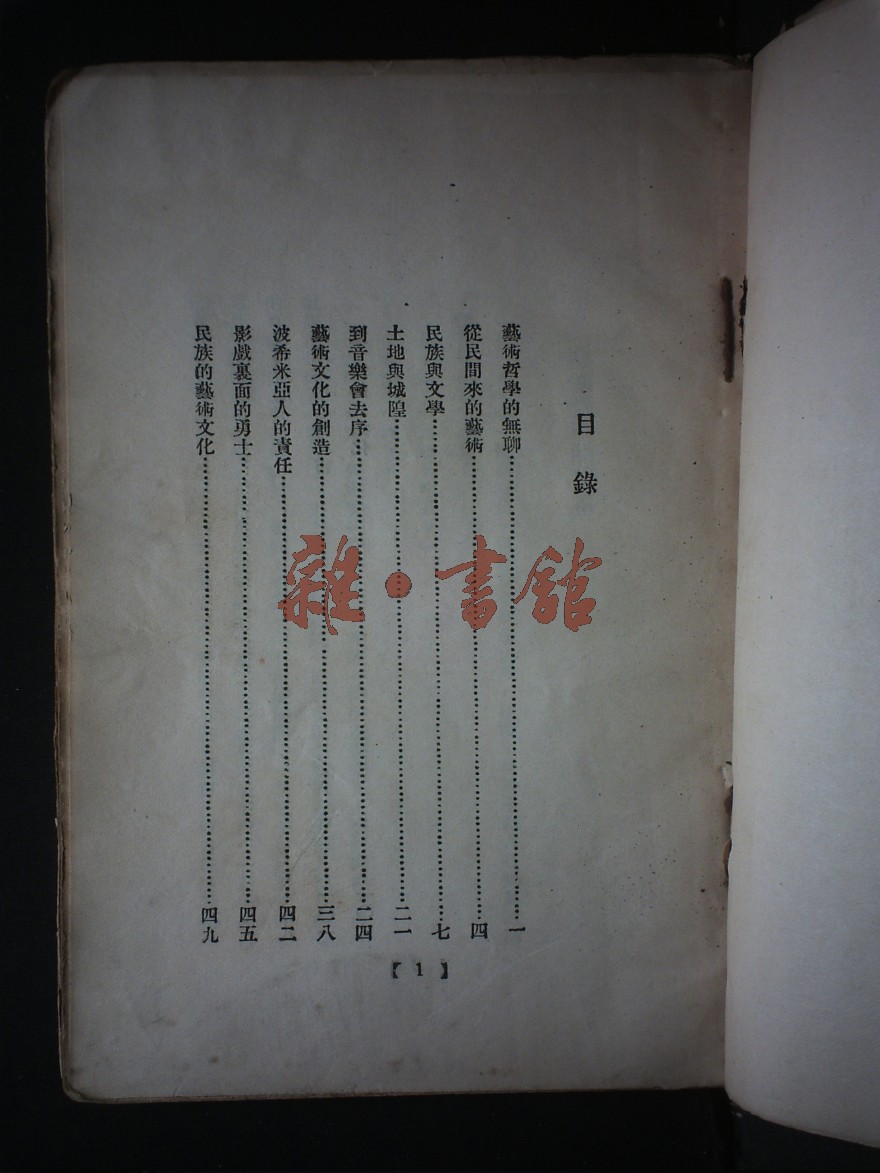 目錄
藝術哲學的無聊……一
從民間來的藝術……四
民族與文學……七
土地與城隍……二一
到音樂會去序……二四
藝術文化的創造……三八
波希米亞人的責任……四二
影戲裏面的勇士……四五
民族的藝術文化……四九
【1】
雜·書館